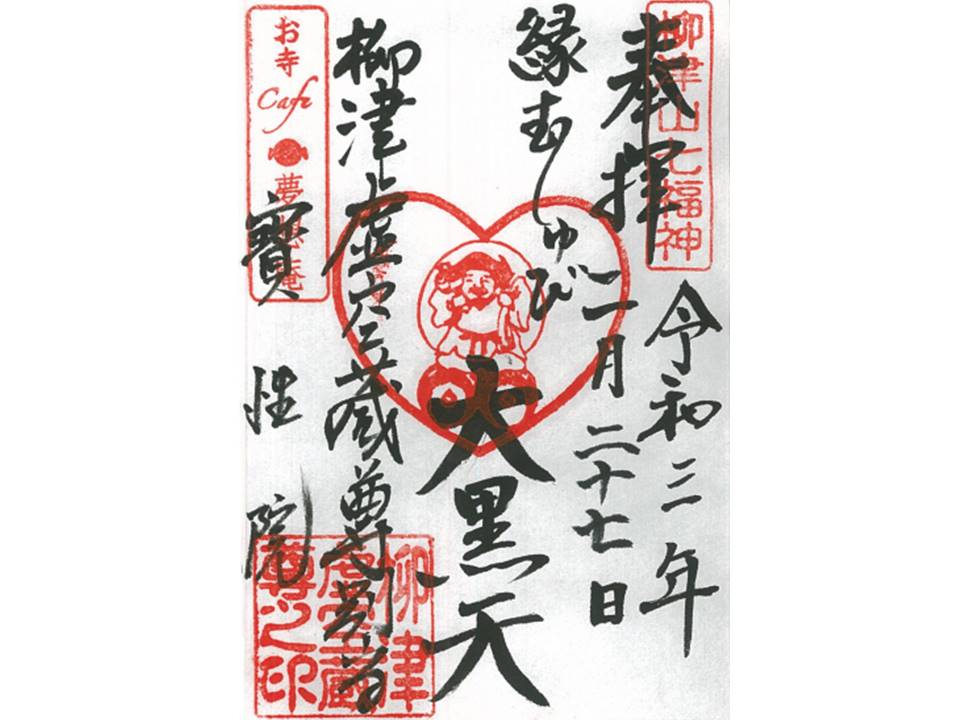 柳津山七福神
奉拝
令和三年
二月二十七日
縁むすび
大黒天
柳津虚空蔵尊別当
寳性院
お寺
Cafe
夢想庵
柳津
虚空蔵
尊之印